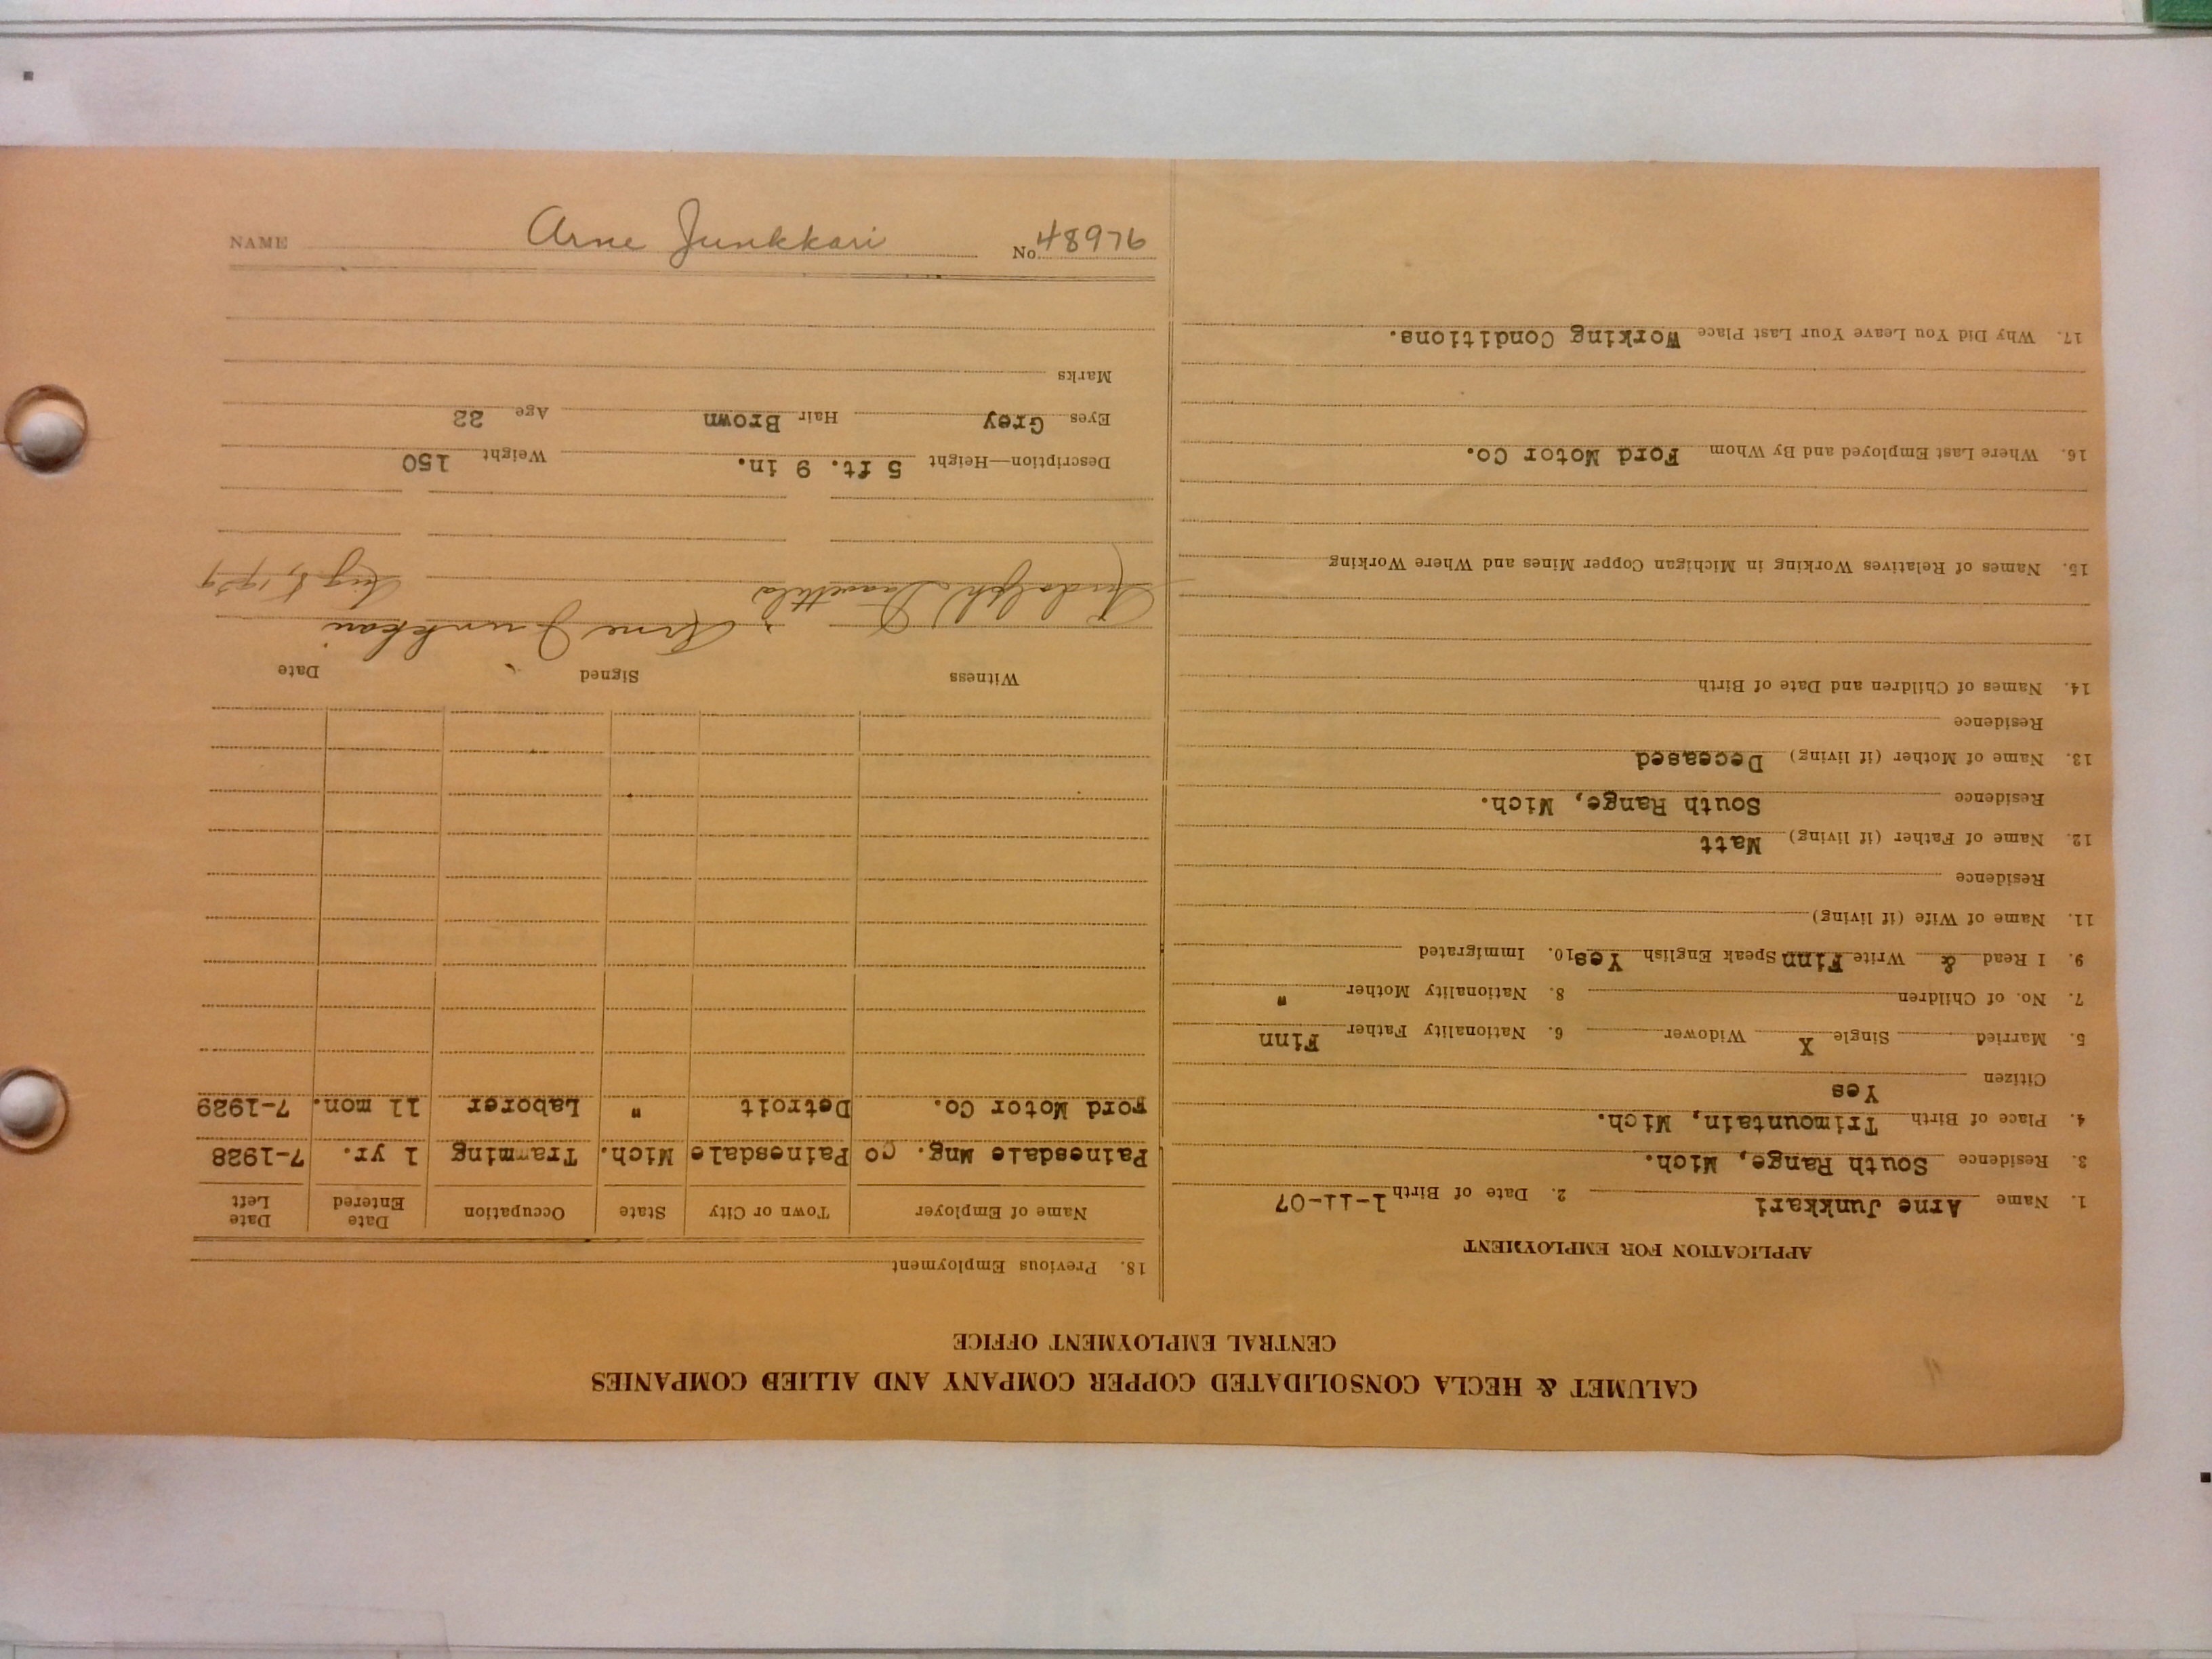 CALUMET & HECLA CONSOLIDATED COPPER COMPANY AND ALLIED COMPANIES
CENTRAL EMPLOYMENT OFFICE
APPLICATION FOR EMPLOYMENT
1. Name Arne Junkkari 2. Date of Birth 1-11-07
3. Residence South Range, Mich.
4. Place of Birth Trimountain, Mich.
Citizen Yes
5. Married Single X Widower 6. Nationality Father Finn
7. No. of Children 8. Nationality Mother "
9. I Read & Write Finn Speak English Yes 10. Immigrated
11. Name of Wife (if living)
Residence
12. Name of Father (if living) Matt
Residence South Range, Mich.
13. Name of Mother (if living) Deceased
Residence
14. Names of Children and Date of Birth
15. Names of Relatives Working in Michigan Copper Mines and Where Working
16. Where Last Employed and By Whom Ford Motor Co.
17. Why Did You Leave Your Last Place Working Conditions.
18. Previous Employment
Name of Employer Town or City State Occupation Date Entered Date Left
Painesdale Mng. Co Painesdale Mich. Tramming 1 yr. 7-1928
Ford Motor Co. Detroit " Laborer 11 mon. 7-1929
Witness Signed Date
Rudolph Arne Junkkari Aug 8, 1929
Description—Height 5 ft. 9 in. Weight 150
Eyes Grey Hair Brown Age 22
Marks
NAME Arne Junkkari No. 48976